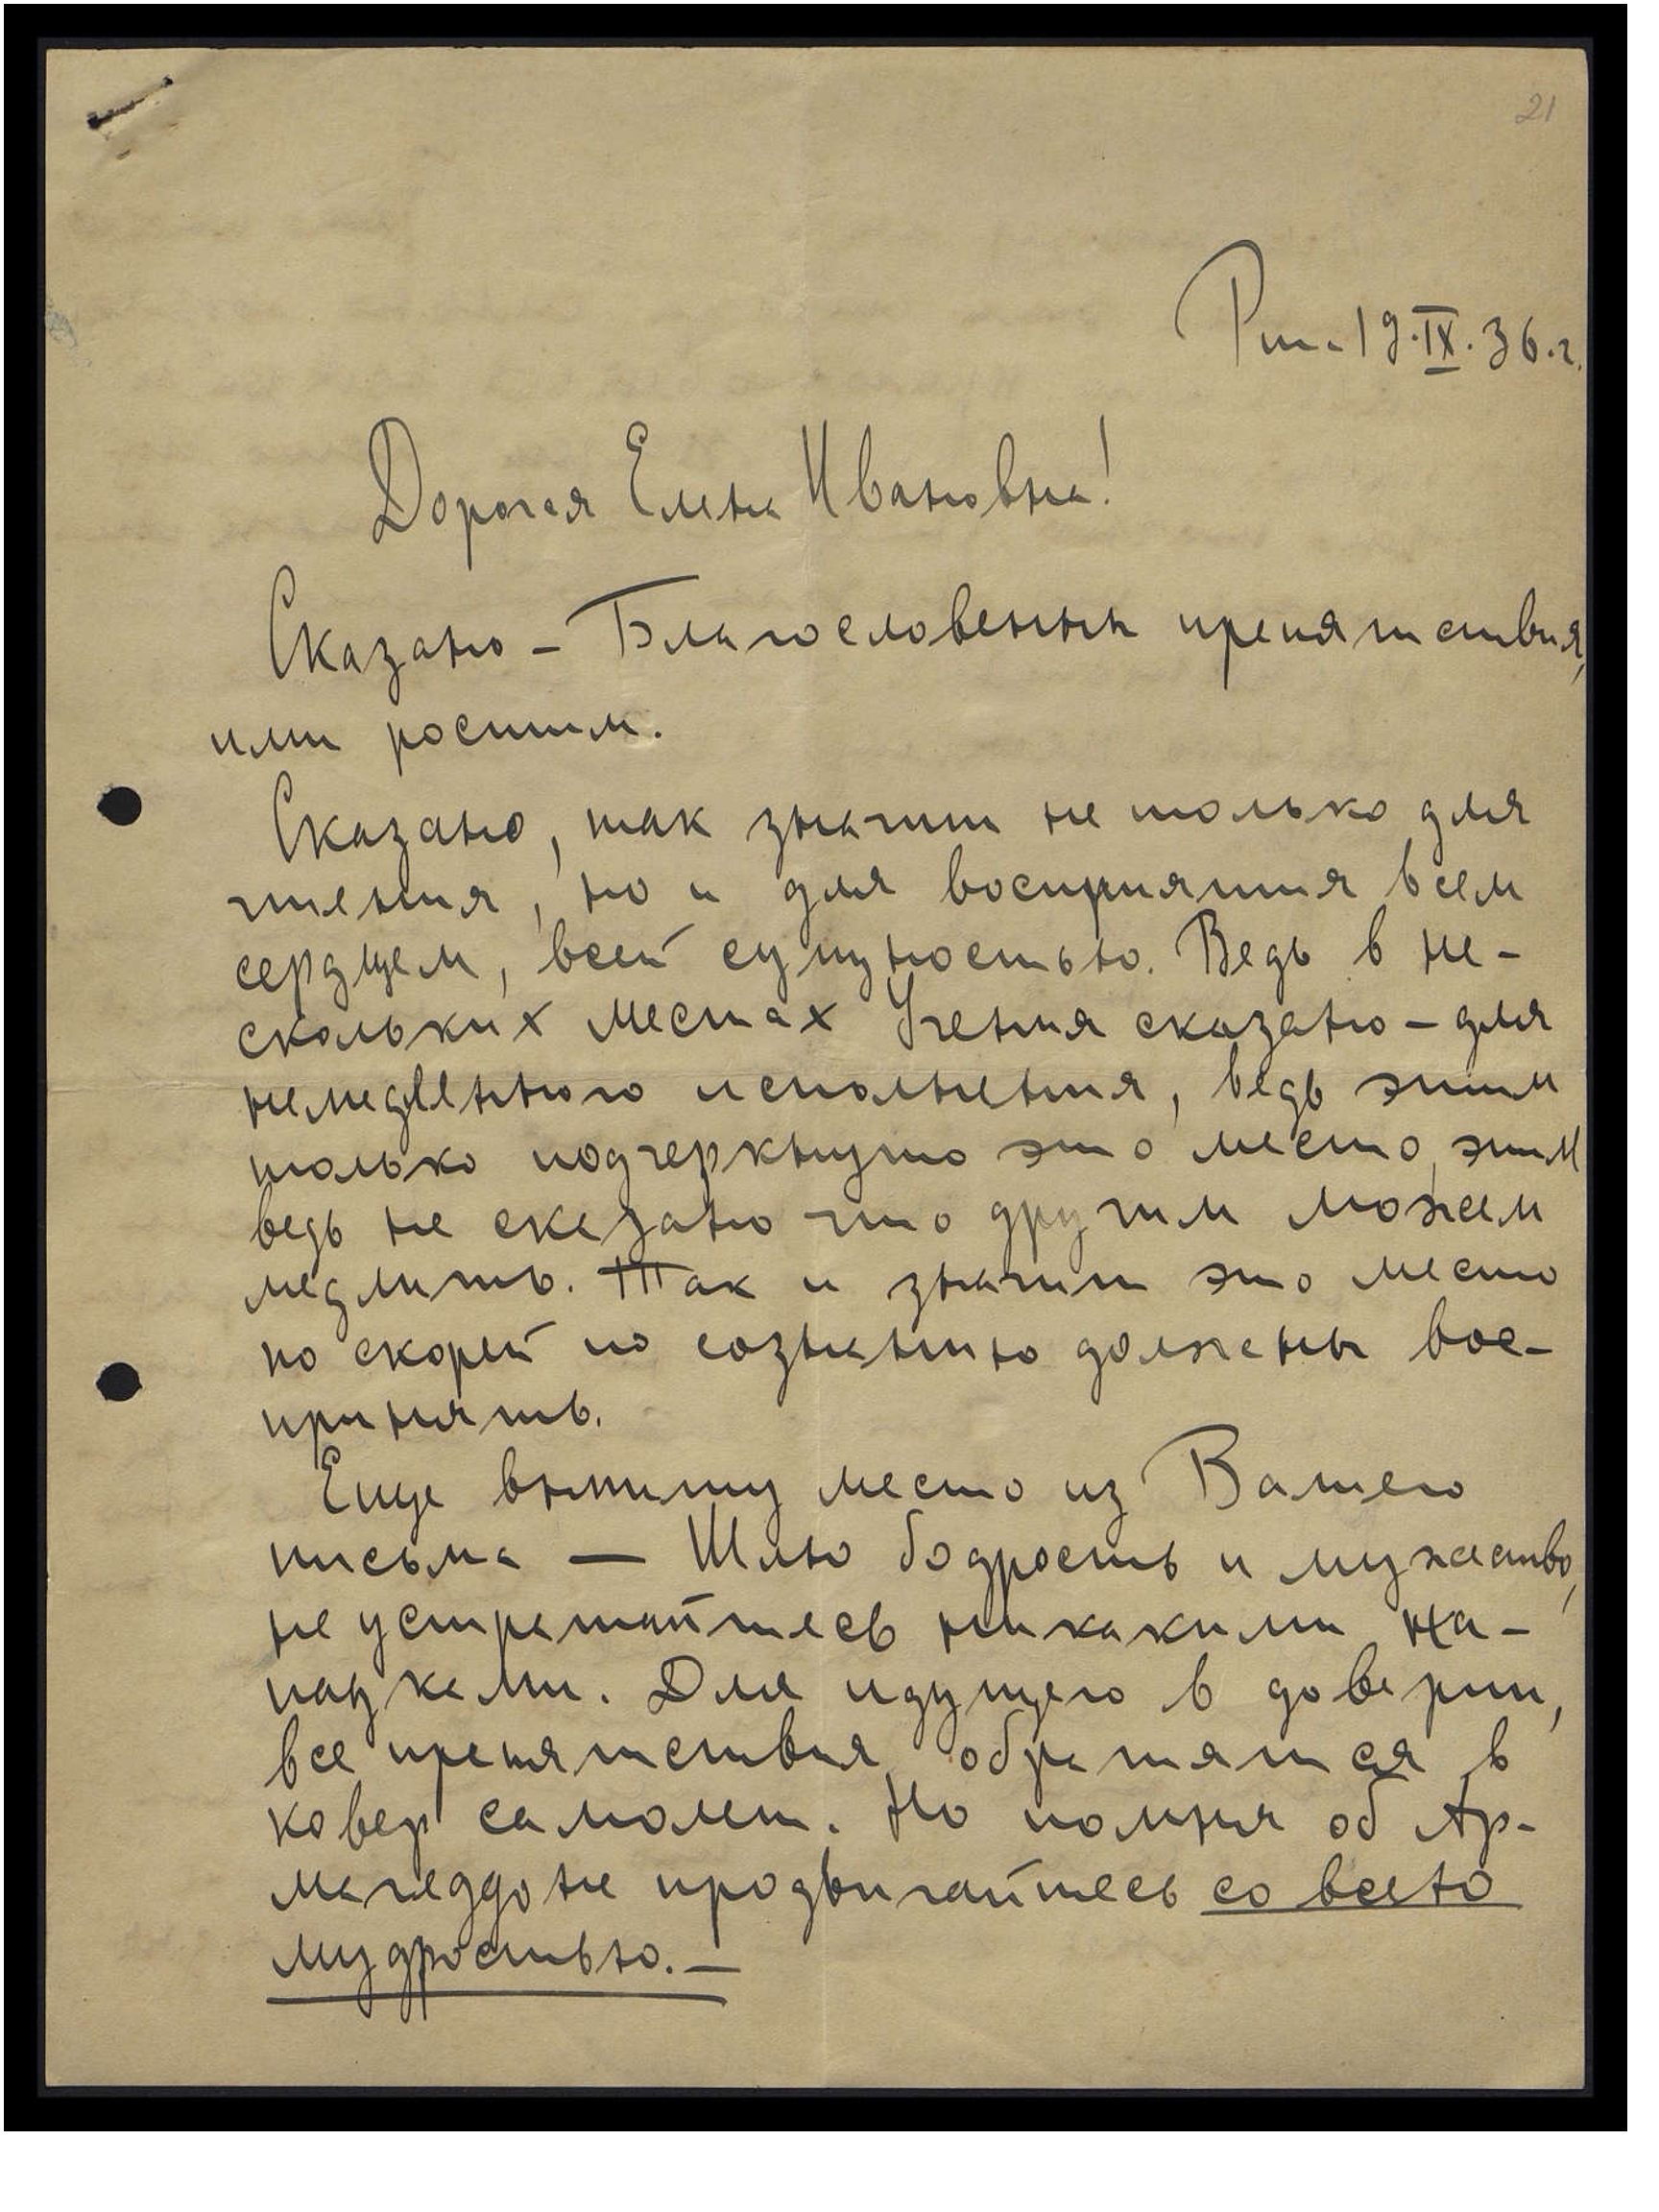 21
Рига 19.IX.36.г.
Дорогая Елена Ивановна!
Сказано – Благословенны препятствия,
ими растем.
Сказано, так значит не только для
чтения, но и для восприятия всем
сердцем, всей сущностью. Ведь в не-
скольких местах Учения сказано – для
немедленного исполнения, ведь этим
только подчеркнуто это место, этим
ведь не сказано что другим можем
медлить. Так и значит это место
по скорей по сознанию должны вос-
принять.
Еще выпишу место из Вашего
письма — Шлю бодрость и мужество,
не устрашайтесь никакими на-
падками. Для идущего в доверии,
все препятствия обратятся в
ковер самолет. Но помня об Ар-
магеддоне продвигайтесь со всею
мудростью. —